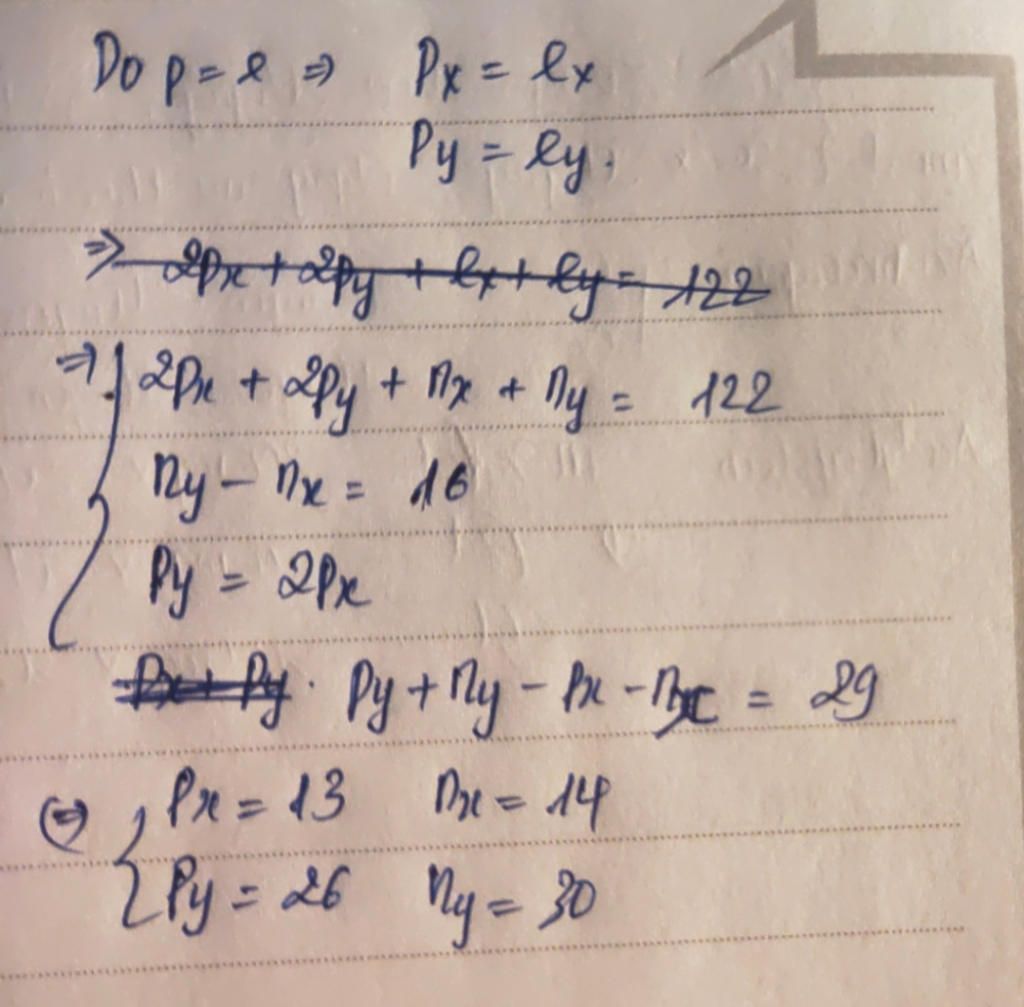 Do p = e ⇒ Px = ex
Py = ey.
⇒ 2px + 2py + ex + ey = 122
⇒ { 2Px + 2Py + nx + ny = 122
ny - nx = 16
Py = 2Px
Px + Py . Py + ny - Px - nx = 29
(=) { Px = 13 nx = 14
Py = 26 ny = 30